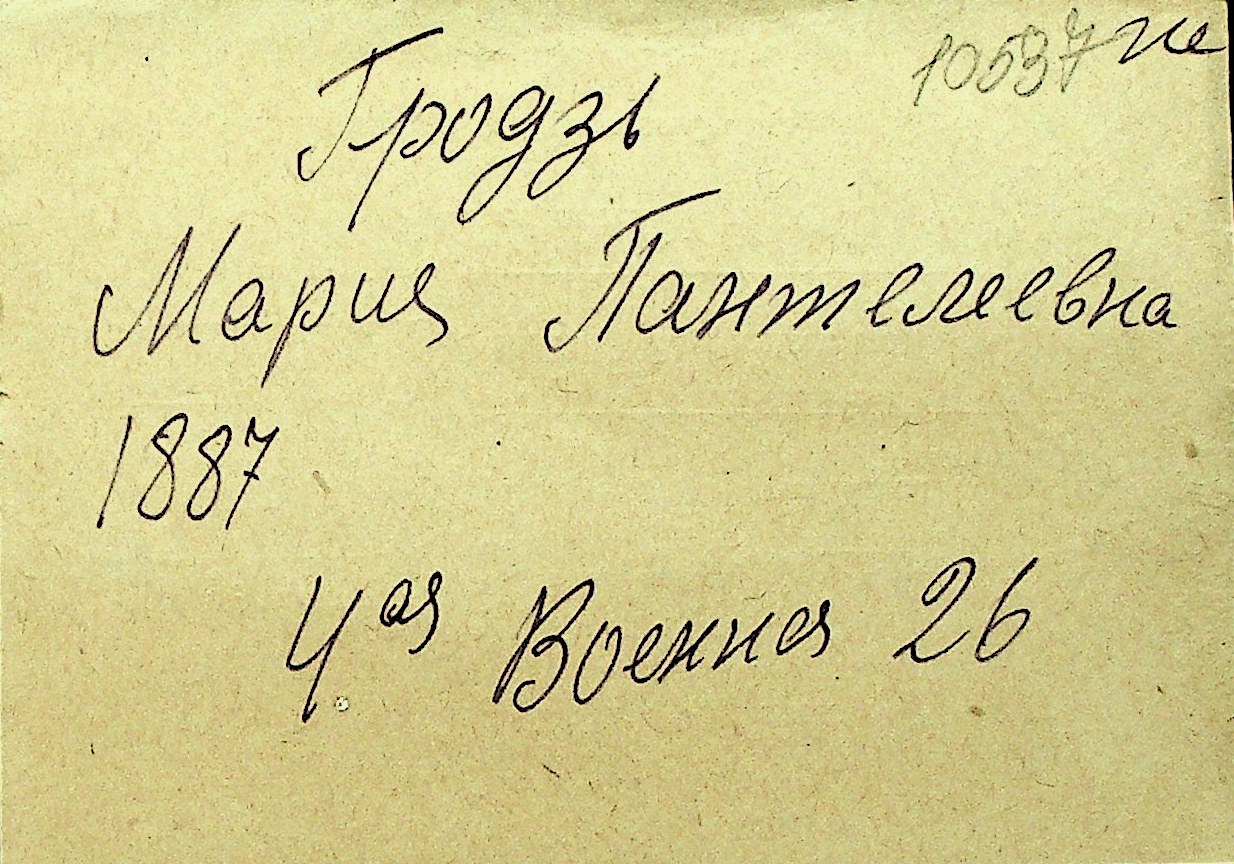 10537 не
Гродзь
Мария Пантелеевна
1887
4ая Военная 26